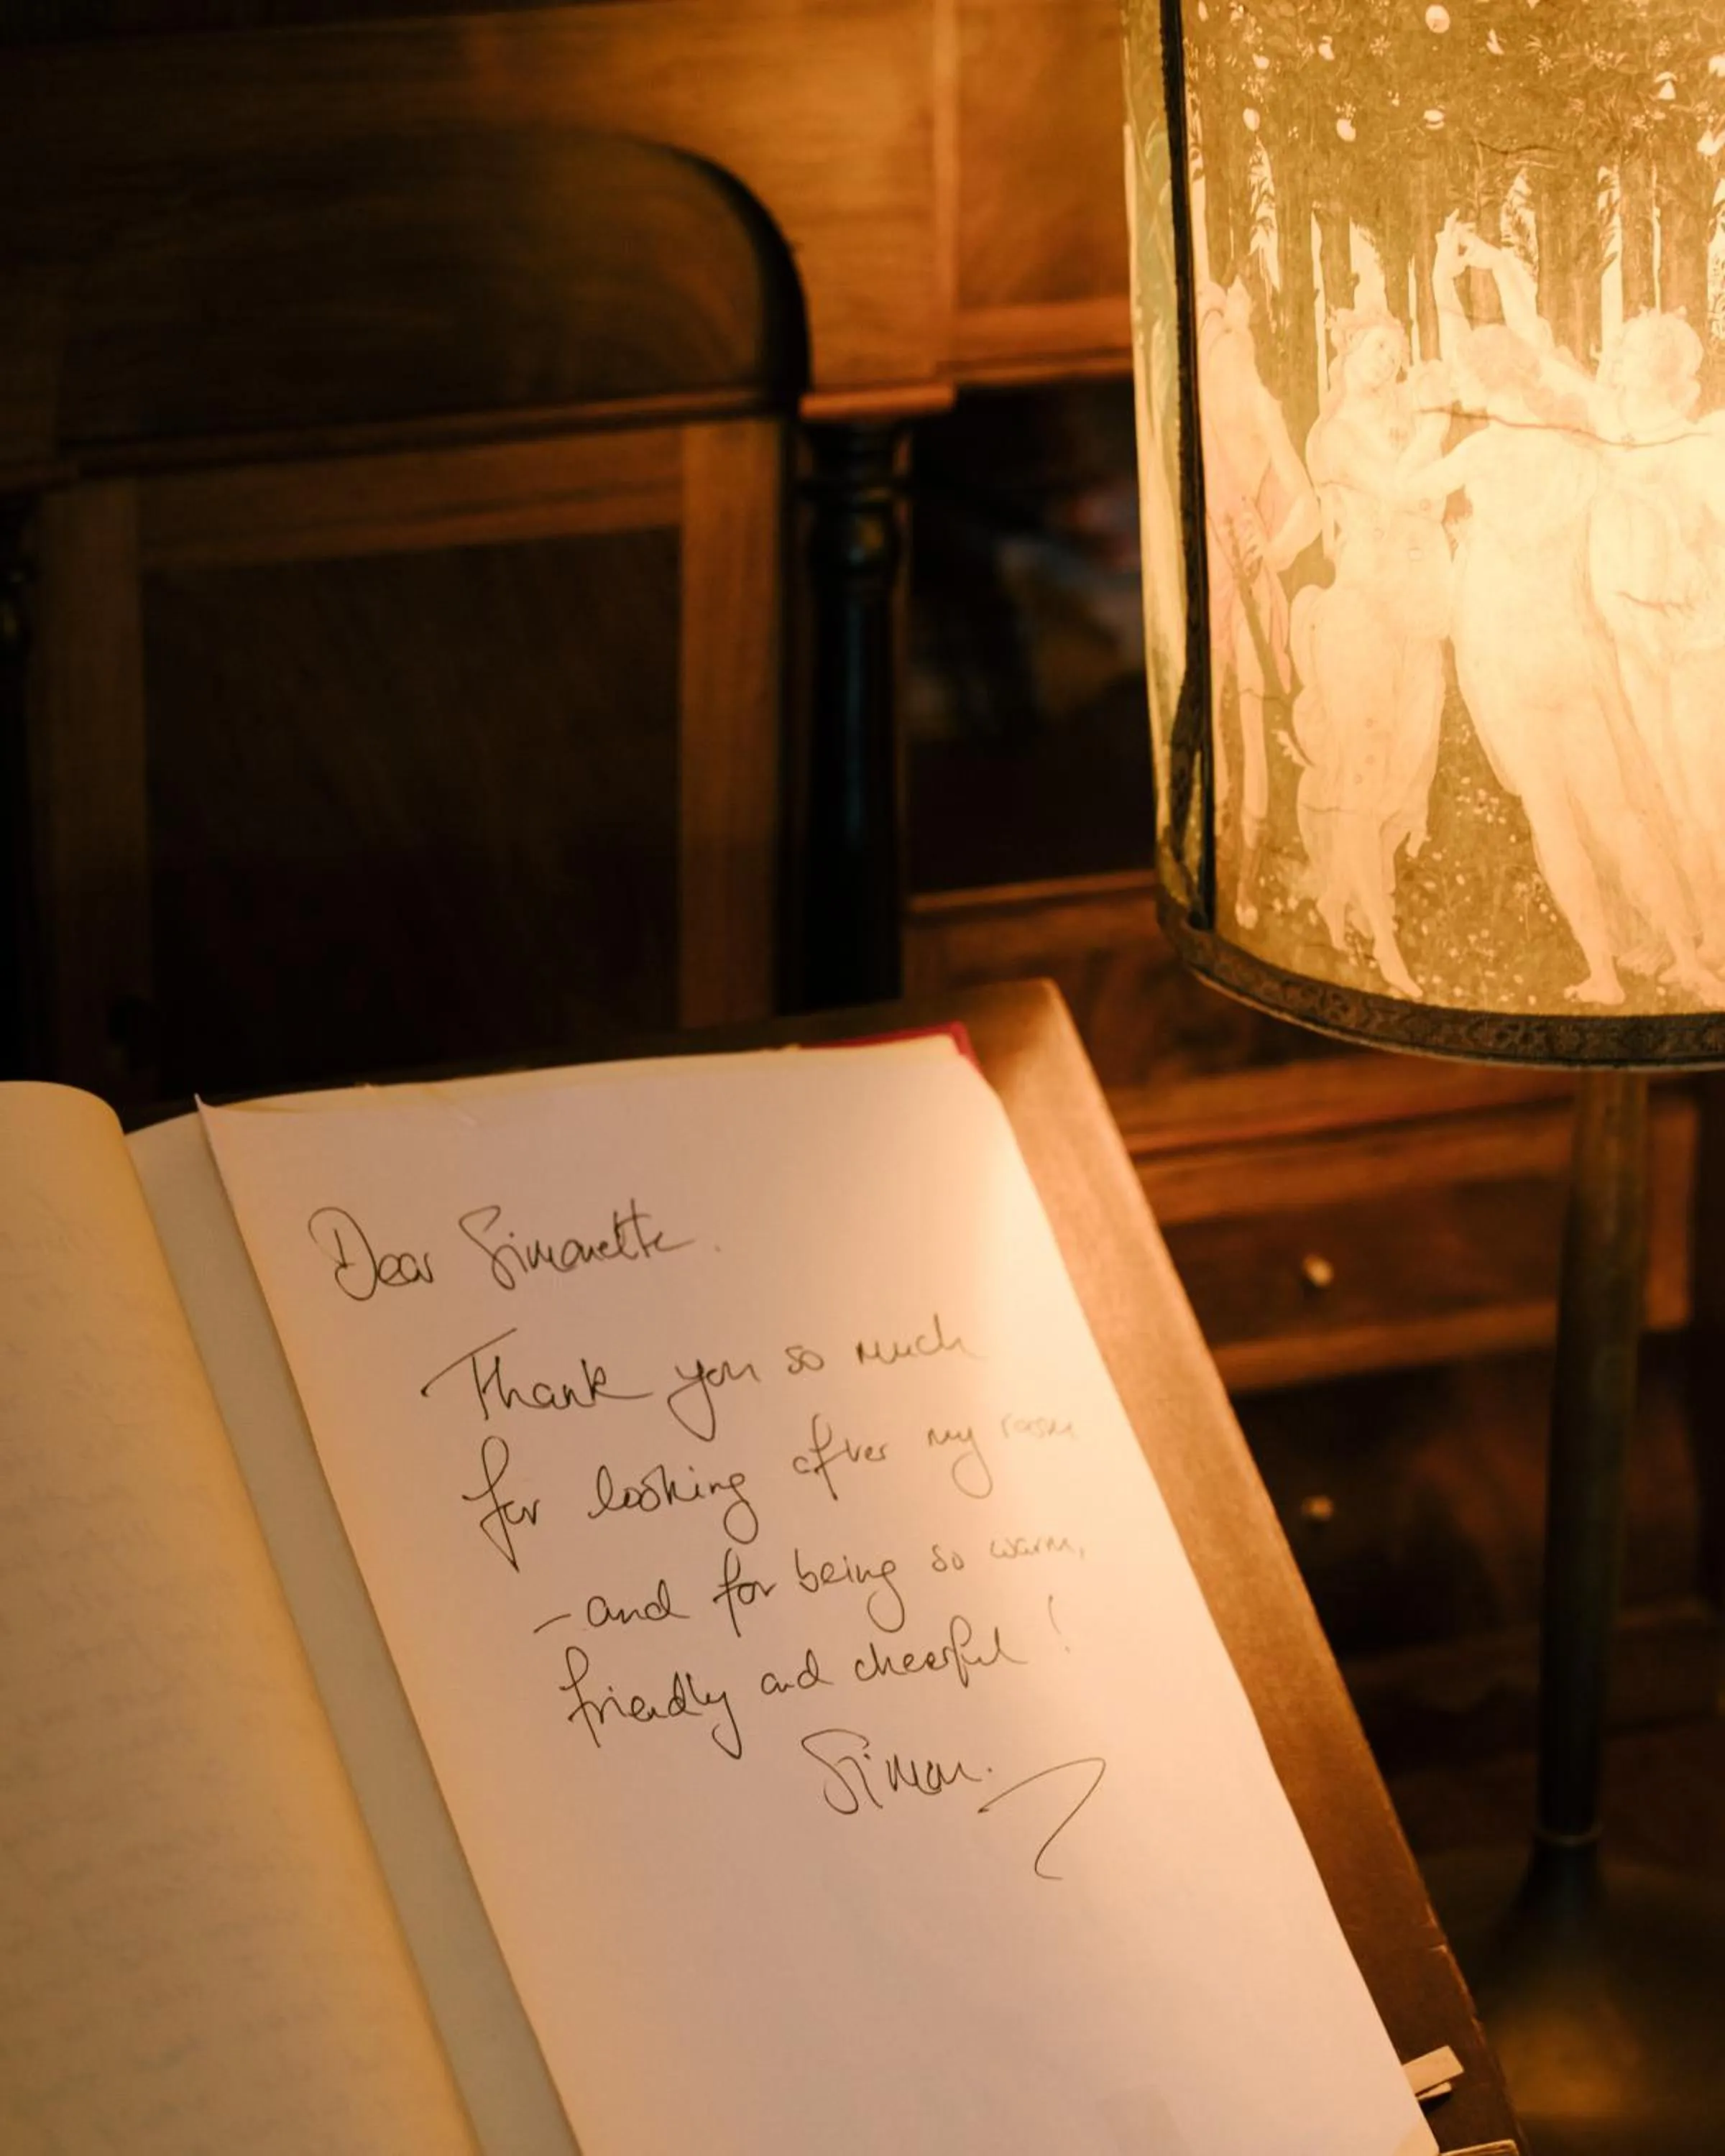 Dear Simonetta.
Thank you so much
for looking after my room
– and for being so warm,
friendly and cheerful!
Simon.